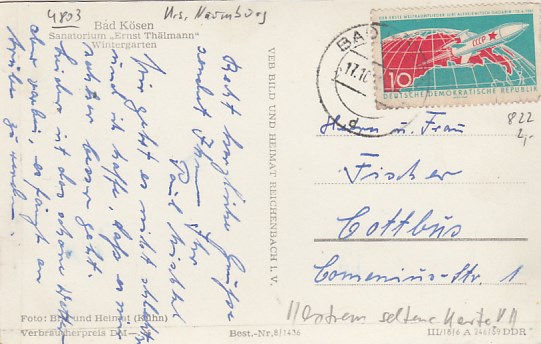 4803
Krs. Naumburg
Bad Kösen
Sanatorium „Ernst Thälmann"
Wintergarten
Recht herzliche Grüße
sendet Ihnen Ihr
Paul
Mir geht es nicht schlecht
und ich hoffe, daß es mir
noch besser geht.
Leider ist das schöne Wetter
aber vorbei, es fängt an
trübe zu werden.
Foto: Bild und Heimat (Kühn)
Verbraucherpreis DM
VEB BILD UND HEIMAT REICHENBACH I. V.
BAD
17.10
CCCP
10
DEUTSCHE DEMOKRATISCHE REPUBLIK
822
2,-
Herrn u. Frau
Fischer
Cottbus
Comenius-Str. 1
!! extrem seltene Karte !!
Best.-Nr. 8/1436
III/18/6 A 246/59 DDR